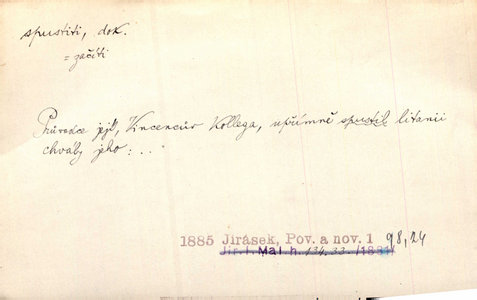 spustiti, dok.
= začíti
Průvodce její, Vincencúr Kollega, upřímně spustil litanii
chvály jeho: . . .
1885 Jirásek, Pov. a nov. 1 98,24
Jir. I. Mal. h. 134.33. /1881/